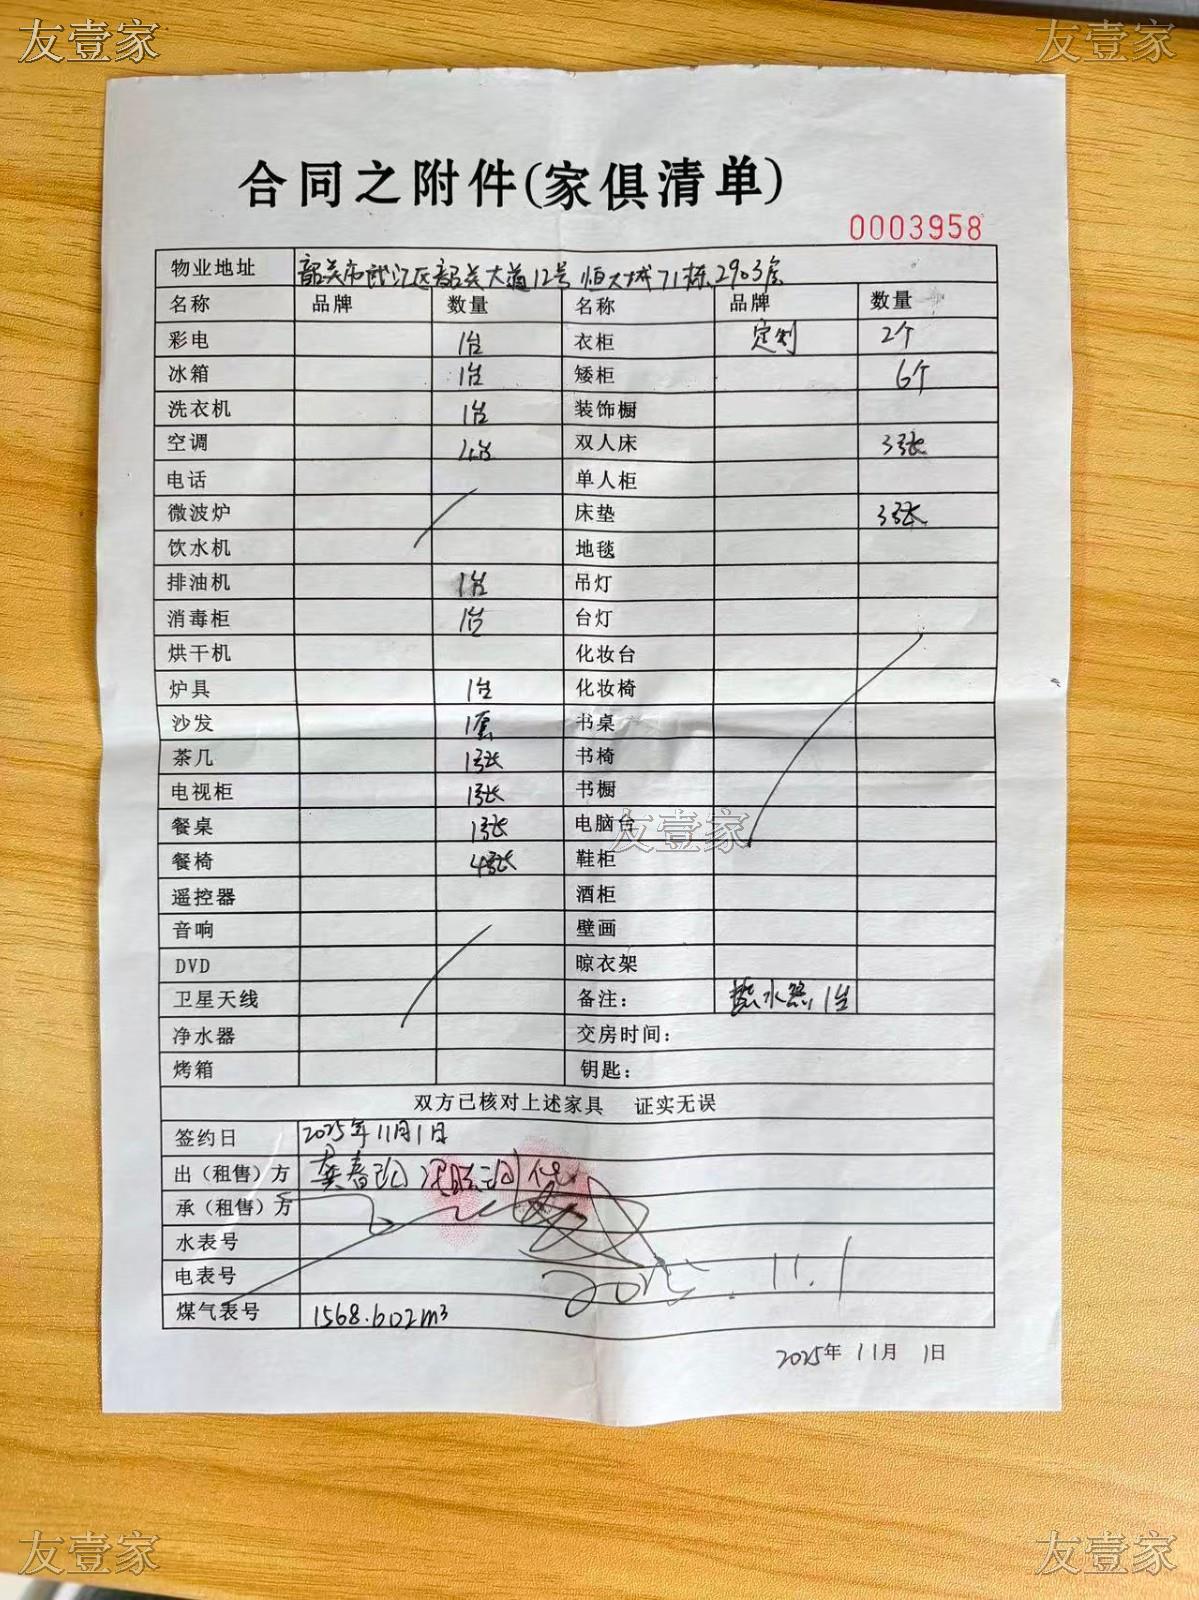 友壹家 友壹家
合同之附件(家俱清单)
0003958
物业地址 韶关市武江区韶关大道12号恒大城71栋2903房
名称 品牌 数量 名称 品牌 数量
彩电 1台 衣柜 定制 2个
冰箱 1台 矮柜 6个
洗衣机 1台 装饰橱
空调 4台 双人床 3张
电话 单人柜
微波炉 床垫 3张
饮水机 地毯
排油机 1台 吊灯
消毒柜 1台 台灯
烘干机 化妆台
炉具 1台 化妆椅
沙发 1套 书桌
茶几 1张 书椅
电视柜 1张 书橱
餐桌 1张 电脑台
友壹家
餐椅 4张 鞋柜
遥控器 酒柜
音响 壁画
DVD 晾衣架
卫星天线 备注: 热水器1台
净水器 交房时间:
烤箱 钥匙:
双方已核对上述家具 证实无误
签约日 2025年11月1日
出(租售)方 代
承(租售)方
水表号
电表号 2025.11.1
煤气表号 1568.602m³
2025年11月1日
友壹家 友壹家